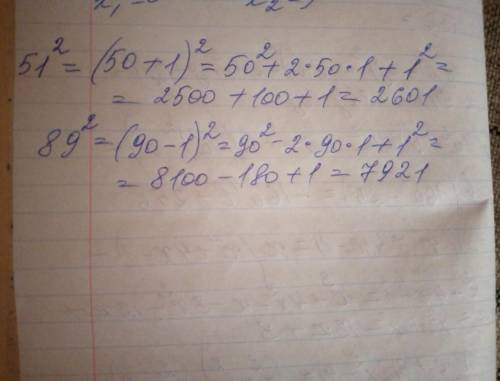 51² = (50 + 1)² = 50² + 2·50·1 + 1² =
= 2500 + 100 + 1 = 2601
89² = (90 - 1)² = 90² - 2·90·1 + 1² =
= 8100 - 180 + 1 = 7921